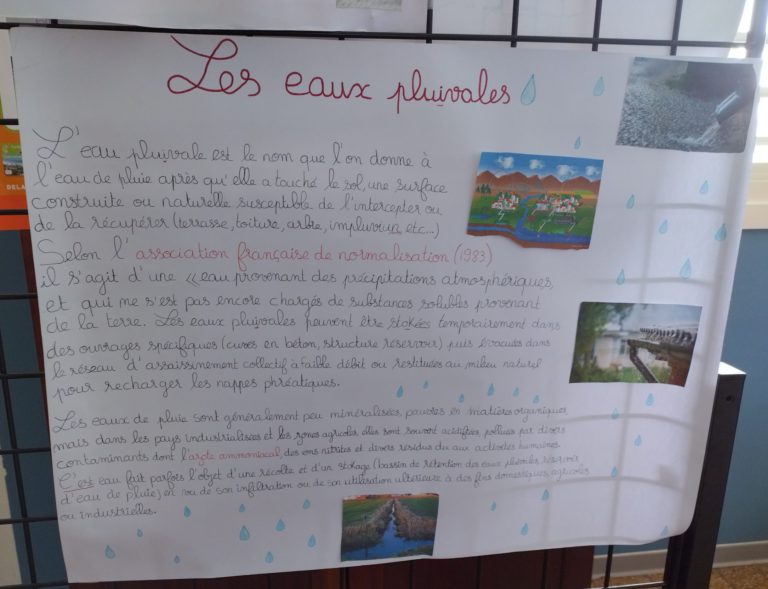 Les eaux pluivales
L'eau pluivale est le nom que l'on donne à
l'eau de pluie après qu'elle a touché le sol, une surface
construite ou naturelle susceptible de l'intercepter ou
de la récupérer (terrasse, toiture, arbre, impluvoiun, etc...)
Selon l'association française de normalisation (1983)
il s'agit d'une « eau provenant des précipitations atmosphériques,
et qui me s'est pas encore chargés de substances solubles provenant
de la terre. Les eaux pluivales peuvent être stokées temporairement dans
des ouvrages spécifiques (cuves en béton, structure réservoir) puis évacuées dans
le réseau d'assaissinement collectif à faible débit ou restituées au milieu naturel
pour recharger les nappes phréatiques.
Les eaux de pluie sont généralement peu minéralisées, pauvres en matières organiques,
mais dans les pays industrialisées et les zones agricoles, elles sont souvent acidifiées, polluées par divers
contaminants dont l'azote ammoniacal, des ions nitrates et divers résidus du aux activités humaines.
C'est eau fait parfois l'objet d'une récolte et d'un stokage (bassin de rétention des eaux pluviales, réservoir
d'eau de pluie) en vu de son infiltration ou de son utilisation ultérieure à des fins domestiques, agricoles
ou industrielles.